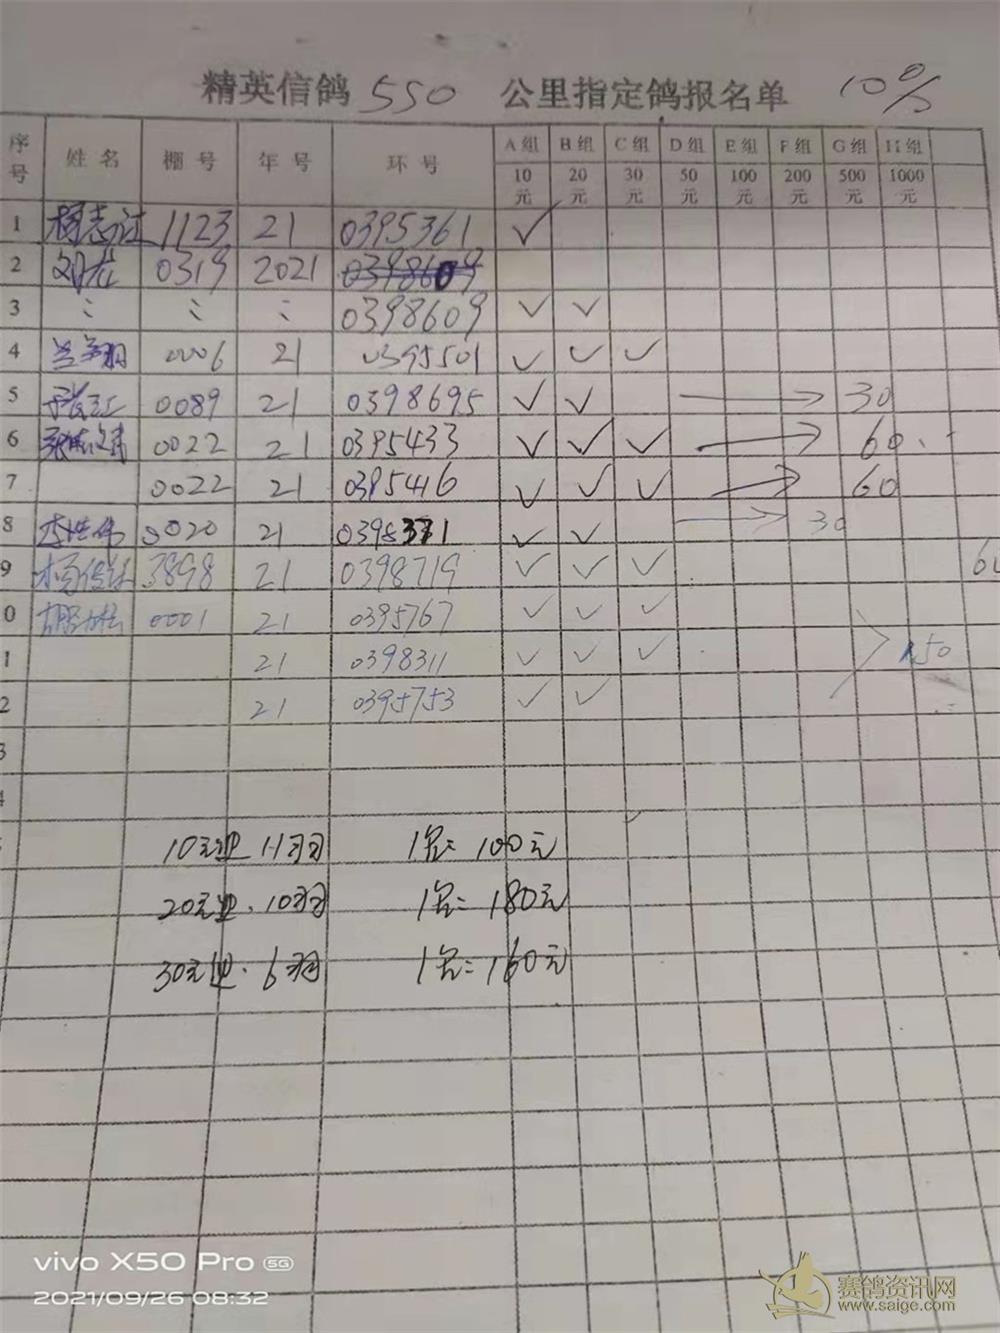 精英信鸽 550 公里指定鸽报名单 10%
序号 姓名 棚号 年号 环号 A组 B组 C组 D组 E组 F组 G组 H组
10元 20元 30元 50元 100元 200元 500元 1000元
1 1123 21 0395361 ✓
2 0319 2021 0398609
3 0398609 ✓ ✓
4 0006 21 0395501 ✓ ✓ ✓
5 0089 21 0398695 ✓ ✓ → 30
6 0022 21 0395433 ✓ ✓ ✓ → 60
7 0022 21 0395416 ✓ ✓ ✓ → 60
8 0020 21 ✓ ✓ → 30
9 3898 21 0398719 ✓ ✓ ✓
0 0001 21 0395767 ✓ ✓ ✓
1 21 0398311 ✓ ✓ ✓ 150
2 21 0395753 ✓ ✓
3
4
10元 11羽 1名= 100元
20元 10羽 1名= 180元
30元 6羽 1名= 160元
vivo X50 Pro 5G
2021/09/26 08:32
赛鸽资讯网
www.saige.com